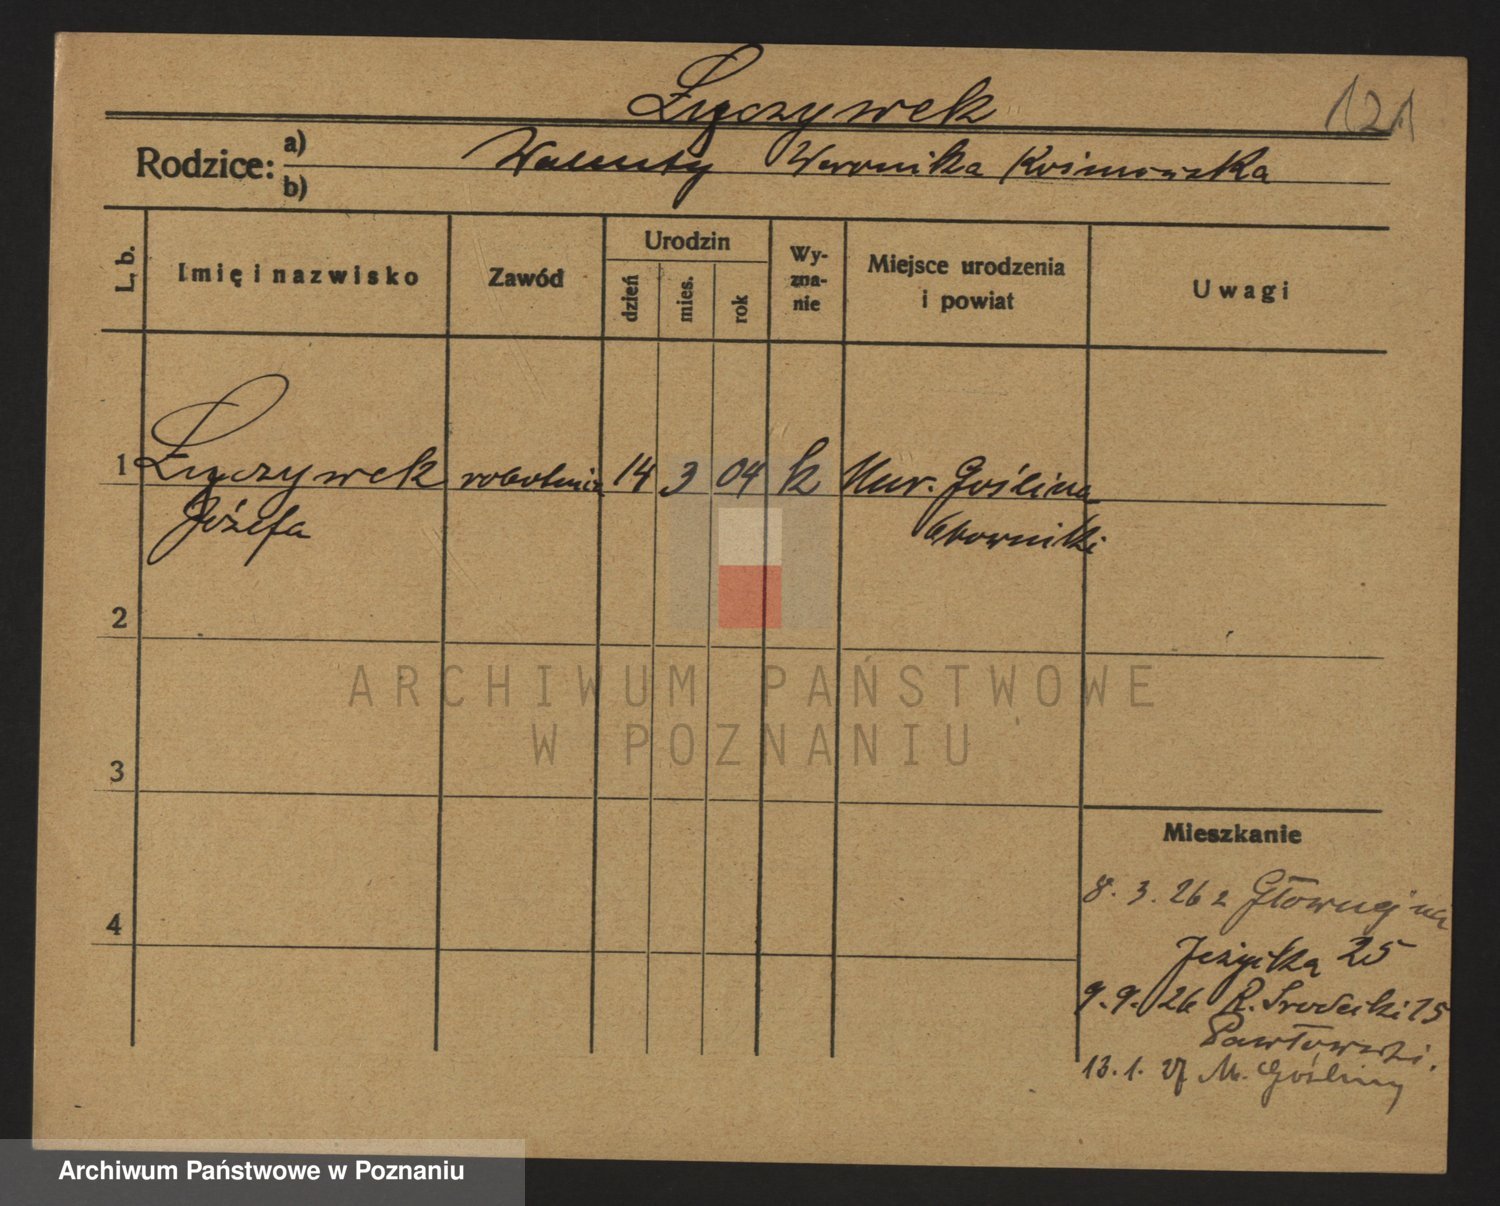 Łyczywek
121
Rodzice: a) b) Walenty Weronika Kośmowska
L. b.
Imię i nazwisko
Zawód
Urodzin
dzień
mies.
rok
Wy-
zna-
nie
Miejsce urodzenia
i powiat
Uwagi
1 Łyczywek robotnica 14 3 04 k Mur. Goślina
Józefa Oborniki
2
3
4
Mieszkanie
8. 3. 26 z Główny na
Jeżycka 25
9. 9. 26 R. Środecki 15
Pawłowski.
13. 1. 27 M. Gośliny
ARCHIWUM PAŃSTWOWE
W POZNANIU
Archiwum Państwowe w Poznaniu